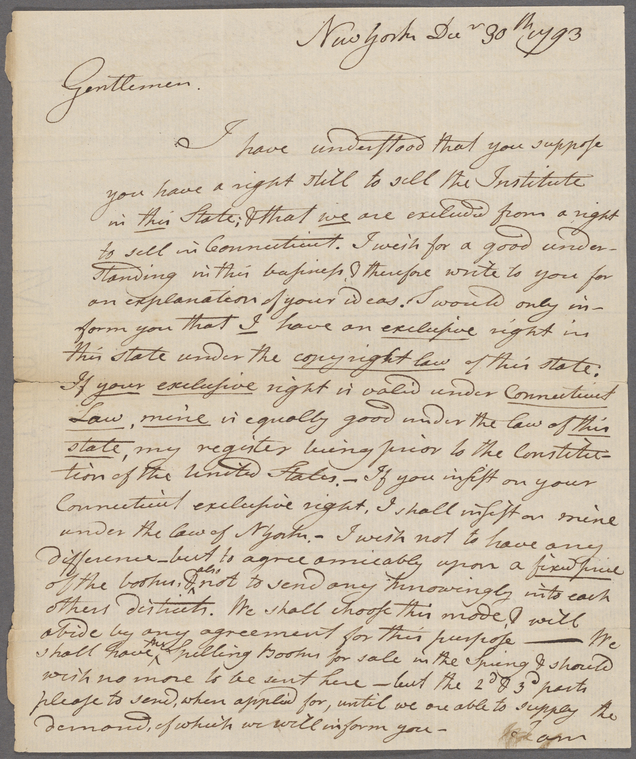 New York Decr 30th 1793
Gentlemen.
I have understood that you suppose
you have a right still to sell the Institute
in this State; & that we are excluded from a right
to sell in Connecticut. I wish for a good under-
standing in this business, & therefore write to you for
an explanation of your ideas. I would only in-
form you that I have an exclusive right in
this state under the copy right law of this state;
If your exclusive right is valid under Connecticut
Law, mine is equally good under the law of this
state, my register being prior to the Constitu-
tion of the United States. - If you insist on your
Connecticut exclusive right, I shall insist on mine
under the law of N York. - I wish not to have any
difference - but to agree amicably upon a fixed price
of the books, & also not to send any knowingly into each
others districts. We shall choose this mode, & will
abide by any agreement for this purpose — We
shall have Spelling Books for sale in the Spring & should
wish no more to be sent here - but the 2d & 3d parts
please to send, when applied for, until we are able to supply the
demand, of which we will inform you -
I am